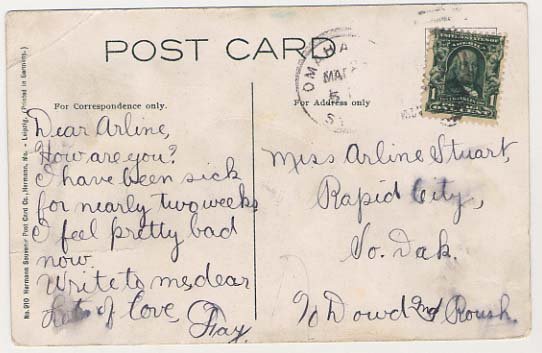 POST CARD
For Correspondence only.
Dear Arline,
How are you?
I have been sick
for nearly two weeks
I feel pretty bad
now.
Write to me, dear
Lots of love,
Fay.
For Address only
Miss Arline Stuart,
Rapid City,
So. Dak.
% Dowd and Roush.
OMAHA
MAR
5
1
No. 910 Hermann Souvenir Post Card Co., Hermann, Mo. - Leipzig. (Printed in Germany.)